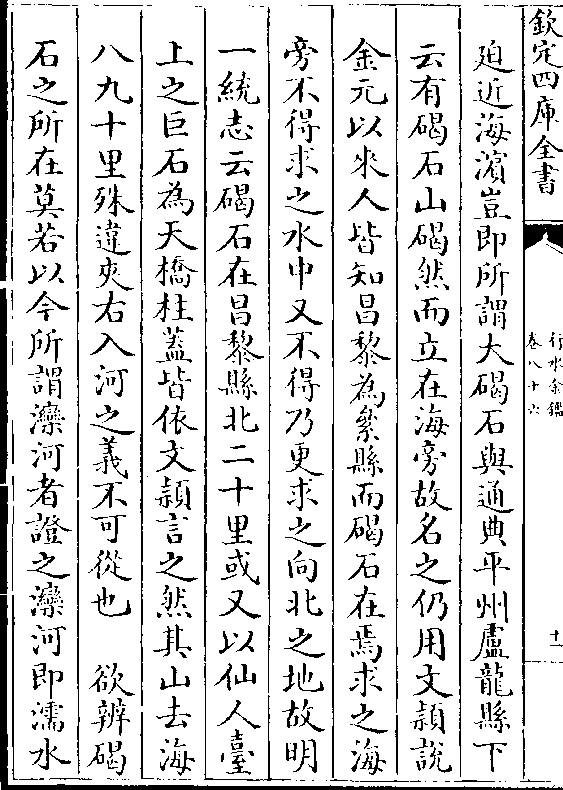 欽定四庫全書
行水金鑑
卷八十六
十一
廹近海濱豈即所謂大碣石與通典平州盧龍縣下
云有碣石山碣然而立在海旁故名之仍用文頴說
金元以來人皆知昌黎為絫縣而碣石在焉求之海
旁不得求之水中又不得乃更求之向北之地故明
一統志云碣石在昌黎縣北二十里或又以仙人臺
上之巨石為天橋柱蓋皆依文頴言之然其山去海
八九十里殊違夾右入河之義不可從也　欲辨碣
石之所在莫若以今所謂灤河者證之灤河即濡水